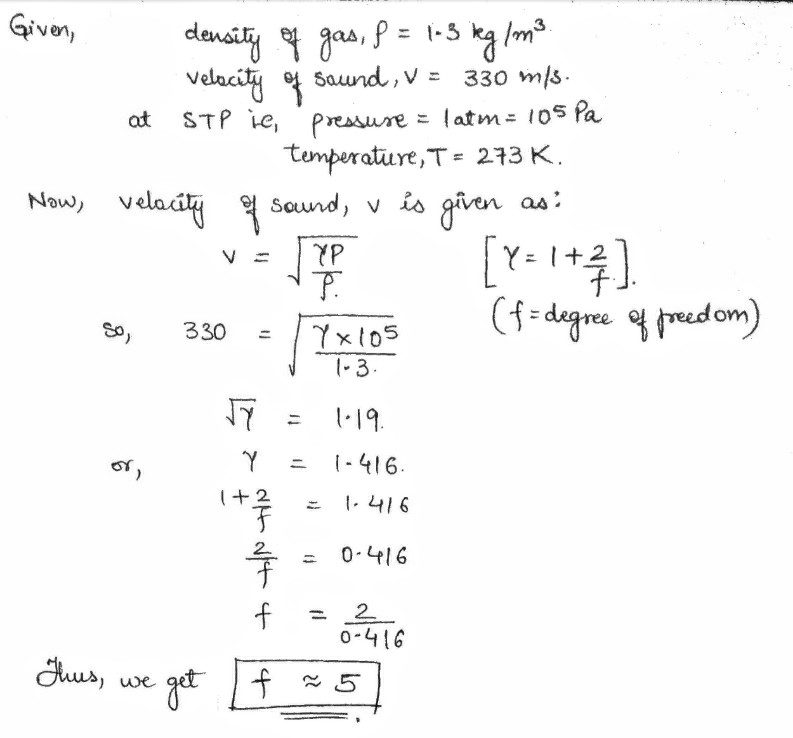 Given, density of gas, ρ = 1.3 kg/m³
velocity of sound, V = 330 m/s.
at STP ie, pressure = 1atm = 10⁵ Pa
temperature, T = 273 K.
Now, velocity of sound, v is given as:
v = √(γP/ρ.) [γ = 1 + 2/f].
(f = degree of freedom)
so, 330 = √(γ × 10⁵/1.3.)
√γ = 1.19.
or, γ = 1.416.
1 + 2/f = 1.416
2/f = 0.416
f = 2/0.416
Thus, we get f ≈ 5.